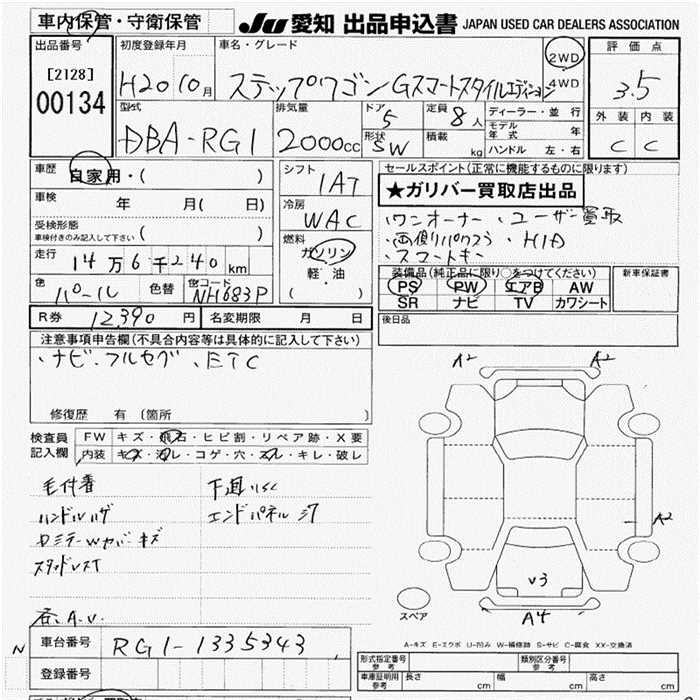 車内保管・守衛保管 JU 愛知 出品申込書 JAPAN USED CAR DEALERS ASSOCIATION
出品番号 初度登録年月 車名・グレード 2WD 4WD 評価点
[2128]
00134 H20 10月 ステップワゴン Gスマートスタイルエディション 3.5
型式 排気量 ドア 定員 ディーラー・並行 外装 内装
DBA-RG1 2000cc 5 8人 モデル年式 年 C C
形状 SW 積載 kg ハンドル 左・右
車歴 自家用・( ) シフト 1AT セールスポイント(正常に機能するものに限ります)
★ガリバー買取店出品
車検 年 月( 日) 冷房 WAC ・ワンオーナー ・ユーザー買取
受検形態 ・両側パワスラ ・HID
車検付きのみ記入して下さい( ) 燃料 ・スマートキー
走行 14万6千240km ガソリン 装備品(純正品に限り○をつけてください) 新車保証書
軽・油 PS PW エアB AW
色 パール 色替 色コード NH683P ( ) SR ナビ TV カワシート
R券 12,390円 名変期限 月 日 後日品
注意事項申告欄(不具合内容等は具体的に記入して下さい)
・ナビ・フルセグ ・ETC A2 A2
修復歴 有 (箇所 )
検査員 FW キズ・飛石・ヒビ割・リペア跡・X要
記入欄 内装 キズ・汚レ・コゲ・穴・スレ・キレ・破レ
毛付着 下廻りSC
ハンドルハゲ エンドパネル A2
スタッドレスT V3
A4
スペア
A.V.
A-キズ E-エクボ U-凹み W-補修跡 S-サビ C-腐食 XX-交換済
N 車台番号 RG1-1335343
形式指定番号 参考 類別区分番号 参考
登録番号 車庫証明用 参考 長さ cm 幅 cm 高さ cm